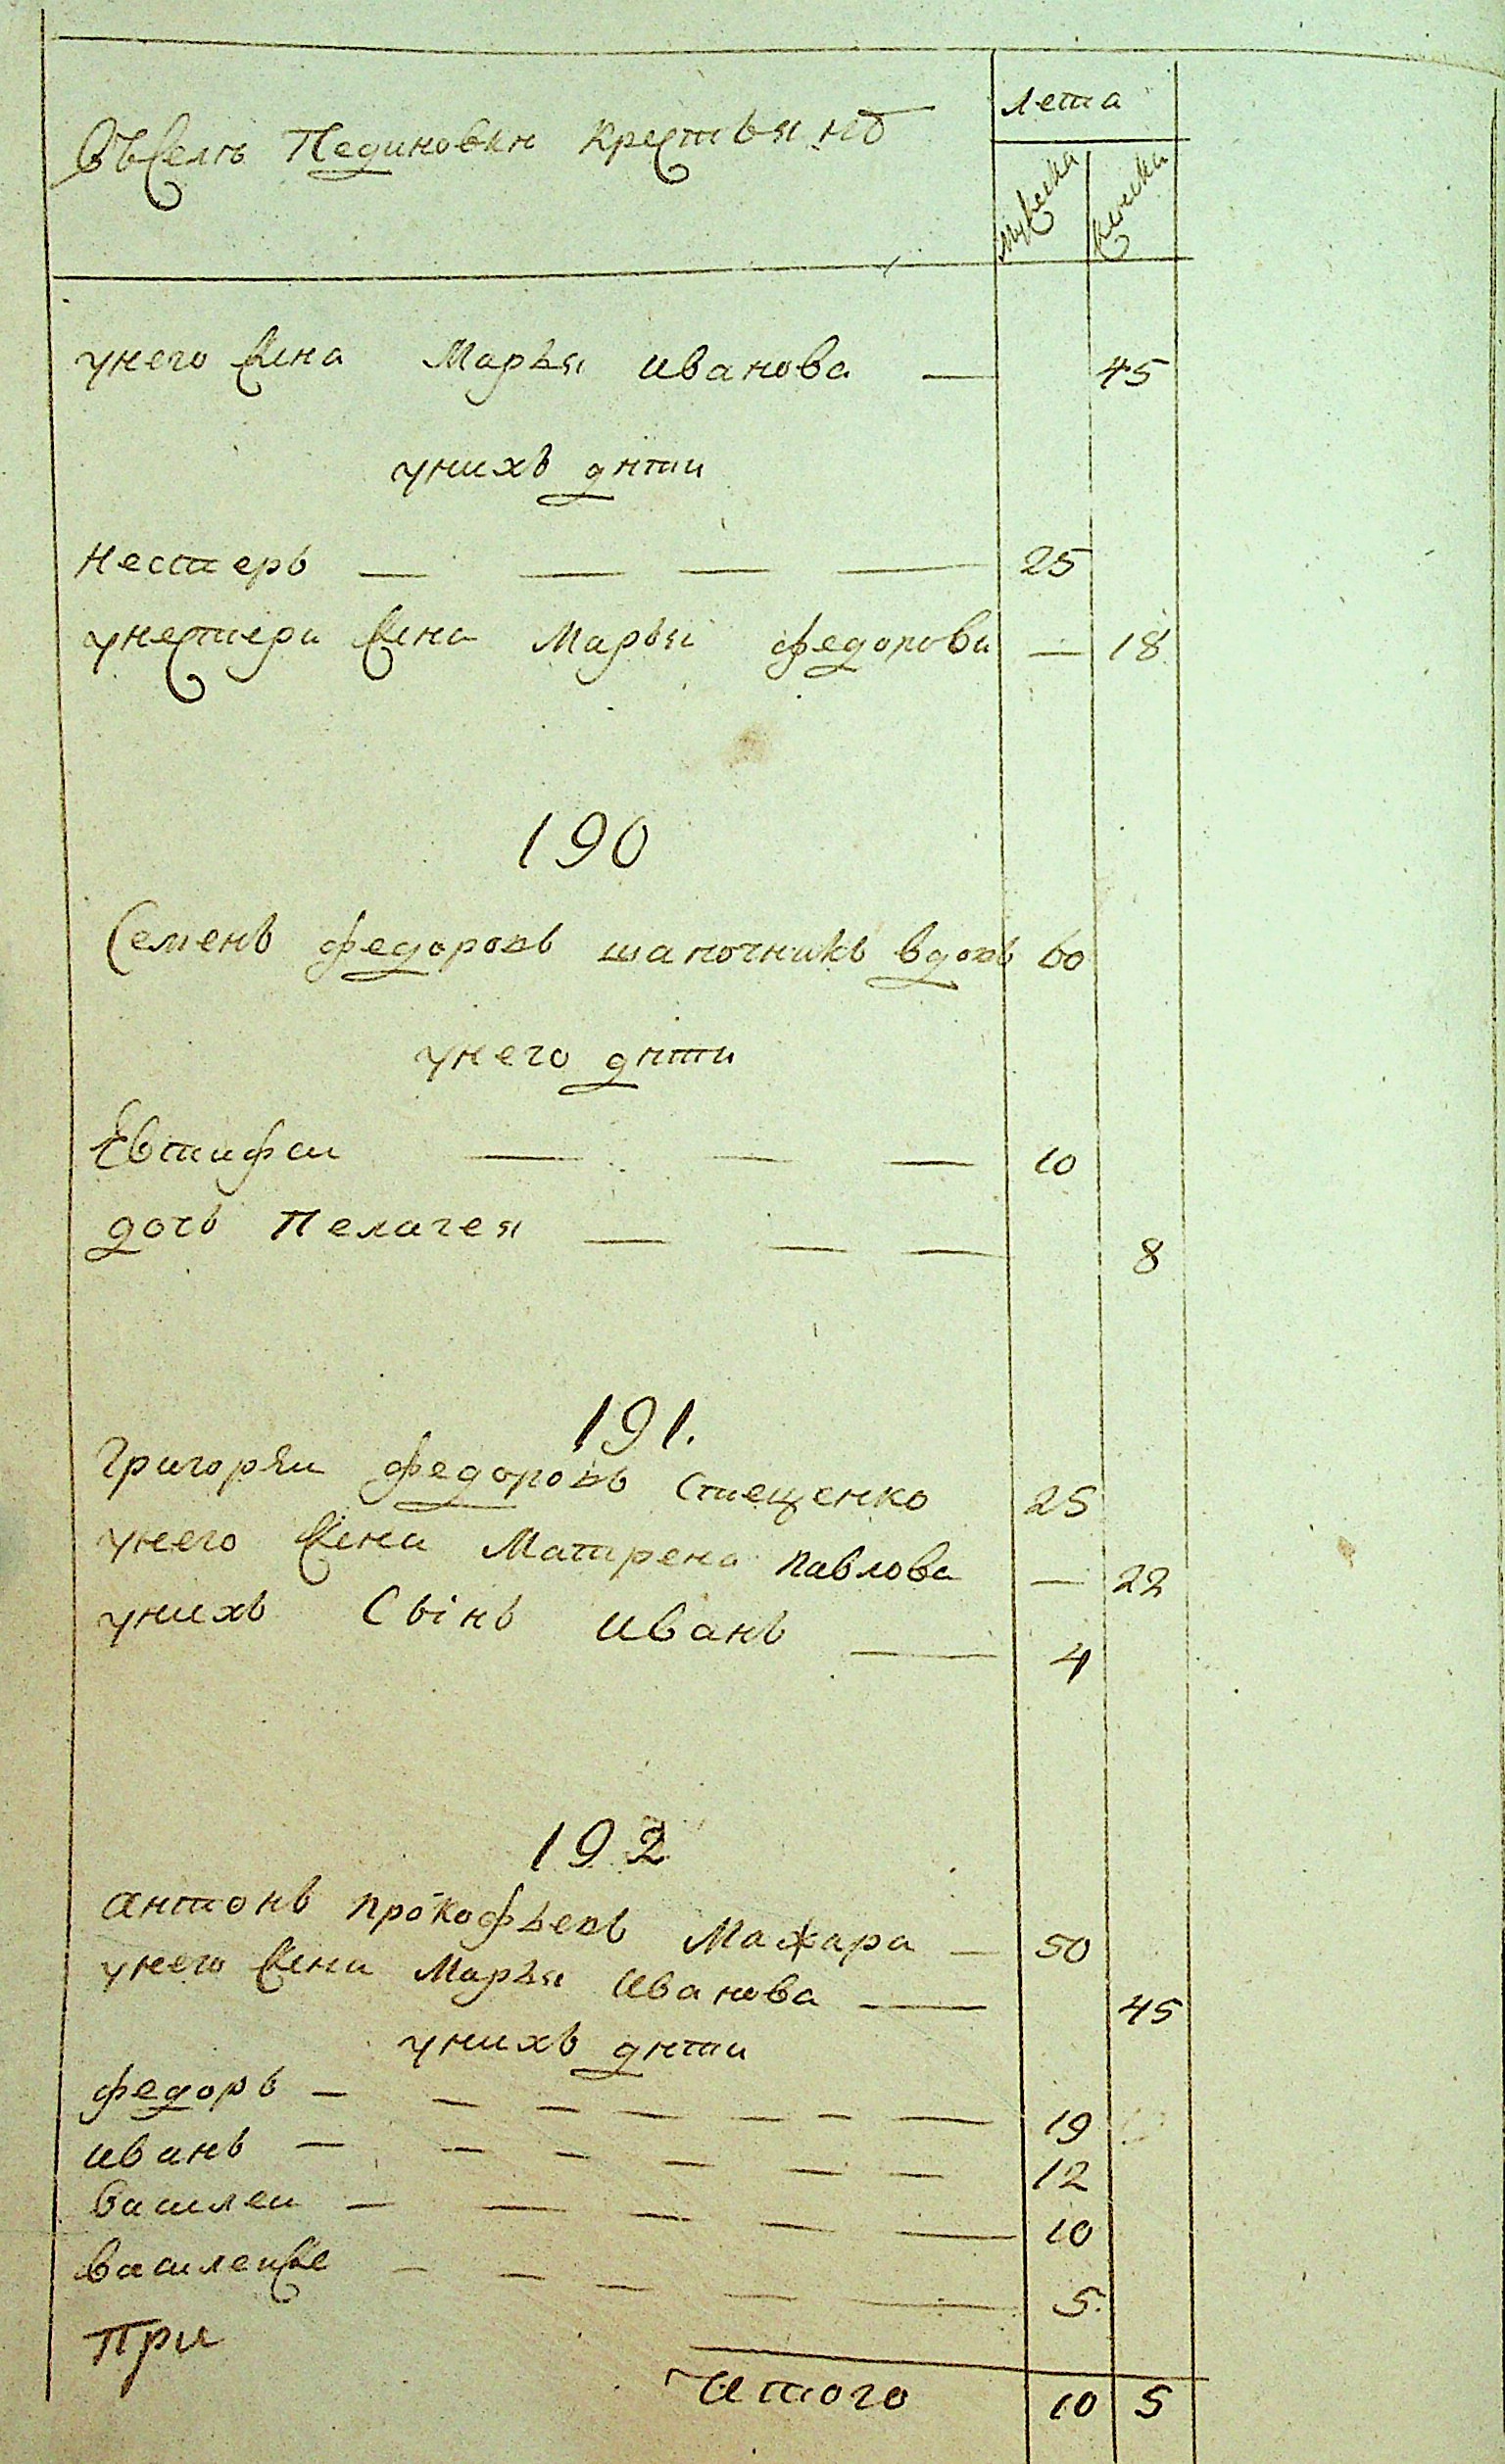 Въ Селѣ Пединовки Крестьянъ
Лета
мужеска
женска
унего жена Марья иванова — 45
унихъ дѣти
Нестеръ — — — — 25
унестера жена Марья федорова — 18
190
Семенъ федоровъ шапочникъ вдовъ 60
унего дѣти
Евтифеи — — — 10
дочь Пелагея — — — 8
191.
Григореи федоровъ Стещенко 25
унего жена Матрена павлова — 22
унихъ Сынъ иванъ — 4
192
антонъ прокофьевъ Мажара — 50
унего жена Марья иванова — 45
унихъ дѣти
федоръ — — — — — — — 19
иванъ — — — — — — 12
василеи — — — — — 10
василеиже — — — — — 5.
При
Итого 10 5